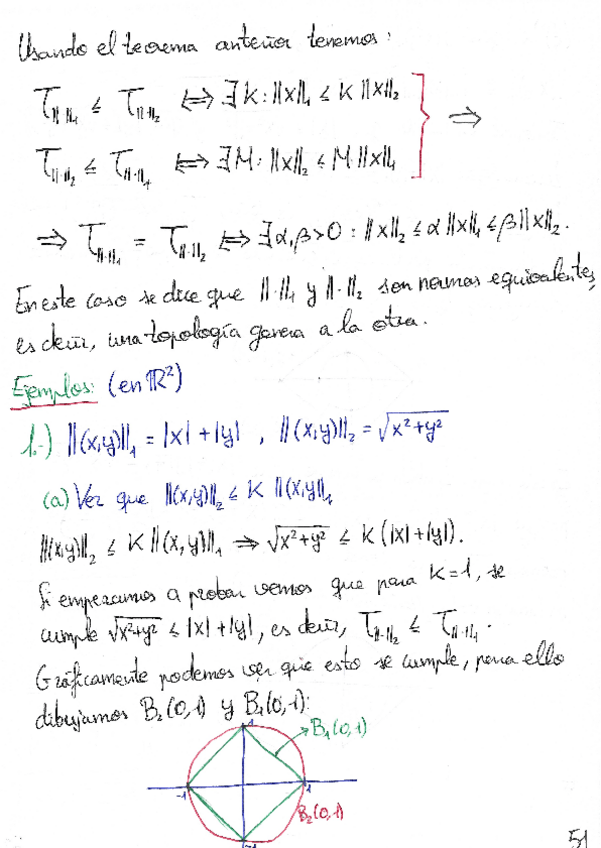 Usando el teorema anterior tenemos:
T‖·‖₁ ≤ T‖·‖₂ ⟺ ∃K: ‖x‖₁ ≤ K ‖x‖₂
⟹
T‖·‖₂ ≤ T‖·‖₁ ⟺ ∃M: ‖x‖₂ ≤ M·‖x‖₁
⟹ T‖·‖₁ = T‖·‖₂ ⟺ ∃α,β>0: ‖x‖₂ ≤ α‖x‖₁ ≤ β‖x‖₂.
En este caso se dice que ‖·‖₁ y ‖·‖₂ son normas equivalentes,
es decir, una topología genera a la otra.
Ejemplos: (en ℝ²)
1.-) ‖(x,y)‖₁ = |x|+|y| , ‖(x,y)‖₂ = √x²+y²
(a) Ver que ‖(x,y)‖₂ ≤ K ‖(x,y)‖₁
‖(x,y)‖₂ ≤ K ‖(x,y)‖₁ ⟹ √x²+y² ≤ K(|x|+|y|).
Si empezamos a probar vemos que para K=1, se
cumple √x²+y² ≤ |x|+|y|, es decir, T‖·‖₂ ≤ T‖·‖₁.
Gráficamente podemos ver que esto se cumple, para ello
dibujamos B₂(0,1) y B₁(0,1):
1
B₁(0,1)
-1
1
B₂(0,1)
-1
51